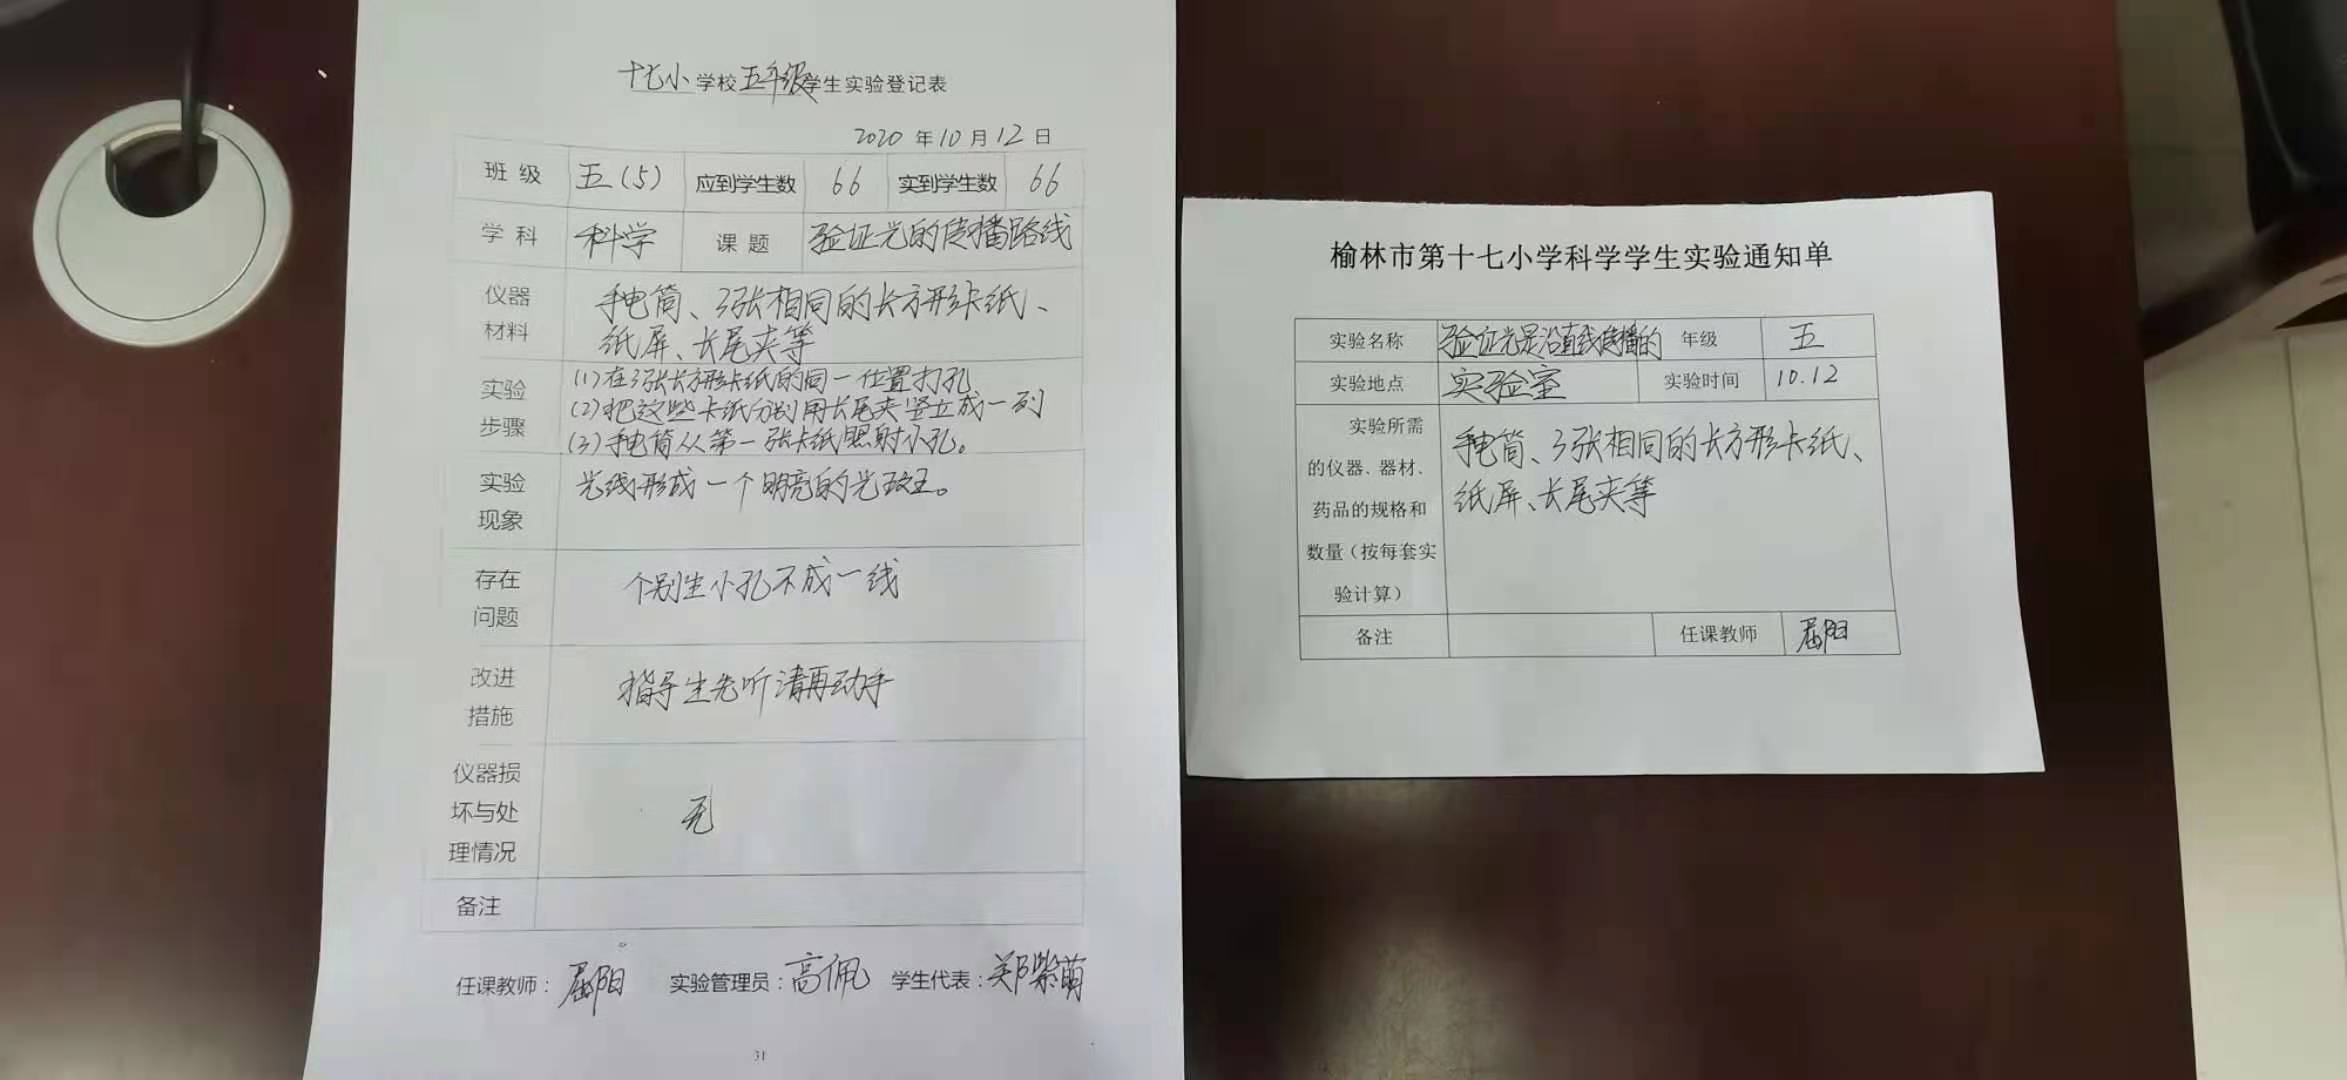 十七小学校五年级学生实验登记表
2020年10月12日
班级 五(5) 应到学生数 66 实到学生数 66
学科 科学 课题 验证光的传播路线
仪器 手电筒、3张相同的长方形卡纸、
材料 纸屏、长尾夹等
(1)在3张长方形卡纸的同一位置打孔
实验 (2)把这些卡纸分别用长尾夹竖立成一列
步骤 (3)手电筒从第一张卡纸照射小孔。
实验 光线形成一个明亮的光斑。
现象
存在 个别生小孔不成一线
问题
改进 指导生先听清再动手
措施
仪器损
坏与处 无
理情况
备注
任课教师: 屈阳 实验管理员: 高佩 学生代表: 郑紫萌
31
榆林市第十七小学科学学生实验通知单
实验名称 验证光是沿直线传播的 年级 五
实验地点 实验室 实验时间 10.12
实验所需 手电筒、3张相同的长方形卡纸、
的仪器、器材、
药品的规格和 纸屏、长尾夹等
数量(按每套实
验计算)
备注 任课教师 屈阳